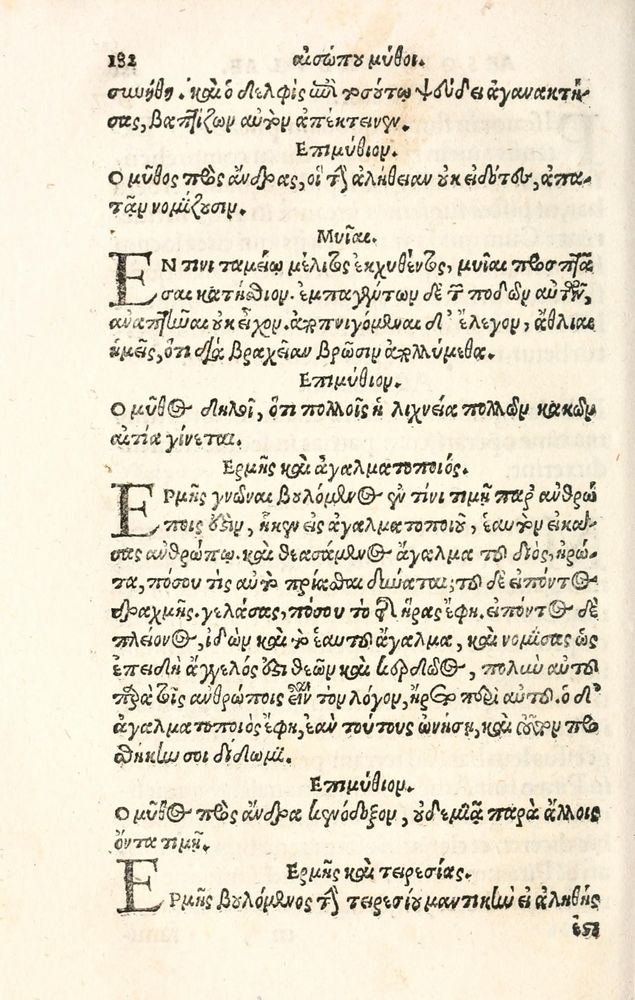 182 αἰσώπου μῦθοι.
συνήθη. καὶ ὁ δελφὶς ἐπὶ τοσούτῳ ψεύδει ἀγανακτή-
σας, βαπτίζων αὐτὸν ἀπέκτεινεν.
Επιμύθιον.
Ο μῦθος πρὸς ἄνδρας, οἳ τὴν ἀλήθειαν οὐκ εἰδότες, ἀπα-
τᾶν νομίζουσιν.
Μυῖαι.
ΕΝ τινι ταμείῳ μέλιτος ἐκχυθέντος, μυῖαι προσπτᾶ
σαι κατήσθιον. ἐμπαγέντων δὲ τῶν ποδῶν αὐτῶν,
ἀναπτῆναι οὐκ εἶχον. ἀποπνιγόμεναι δ' ἔλεγον, ἄθλιαι
ἡμεῖς, ὅτι διὰ βραχεῖαν βρῶσιν ἀπολλύμεθα.
Επιμύθιον.
Ο μῦθος δηλοῖ, ὅτι πολλοῖς ἡ λιχνεία πολλῶν κακῶν
αἰτία γίνεται.
Ερμῆς καὶ ἀγαλματοποιός.
ΕΡμῆς γνῶναι βουλόμενος ἐν τίνι τιμῇ παρ' ἀνθρώ
ποις ἐστὶν, ἧκεν εἰς ἀγαλματοποιοῦ, ἑαυτὸν εἰκά-
σας ἀνθρώπῳ. καὶ θεασάμενος ἄγαλμα τοῦ διὸς, ἠρώ-
τα, πόσου τὶς αὐτὸ πρίασθαι δύναται; τοῦ δὲ εἰπόντος
δραχμῆς. γελάσας, πόσου τὸ τῆς ἥρας ἔφη. εἰπόντος δὲ
πλείονος, ἰδὼν καὶ τὸ ἑαυτοῦ ἄγαλμα, καὶ νομίσας ὡς
ἐπειδὴ ἄγγελός ἐστι θεῶν καὶ κερδῶος, πολὺν αὐτοῦ
παρὰ τοῖς ἀνθρώποις εἶναι τὸν λόγον, ἤρετο περὶ αὐτοῦ. ὁ δ'
ἀγαλματοποιὸς ἔφη, ἐὰν τούτους ὠνήσῃ, καὶ τοῦτον προ
σθήκην σοι δίδωμι.
Επιμύθιον.
Ο μῦθος πρὸς ἄνδρα κενόδοξον, οὐδεμιᾷ παρὰ ἄλλοις
ὄντα τιμῇ.
Ερμῆς καὶ τειρεσίας.
ΕΡμῆς βουλόμενος τὴν τειρεσίου μαντικὴν εἰ ἀληθής
ἐστι